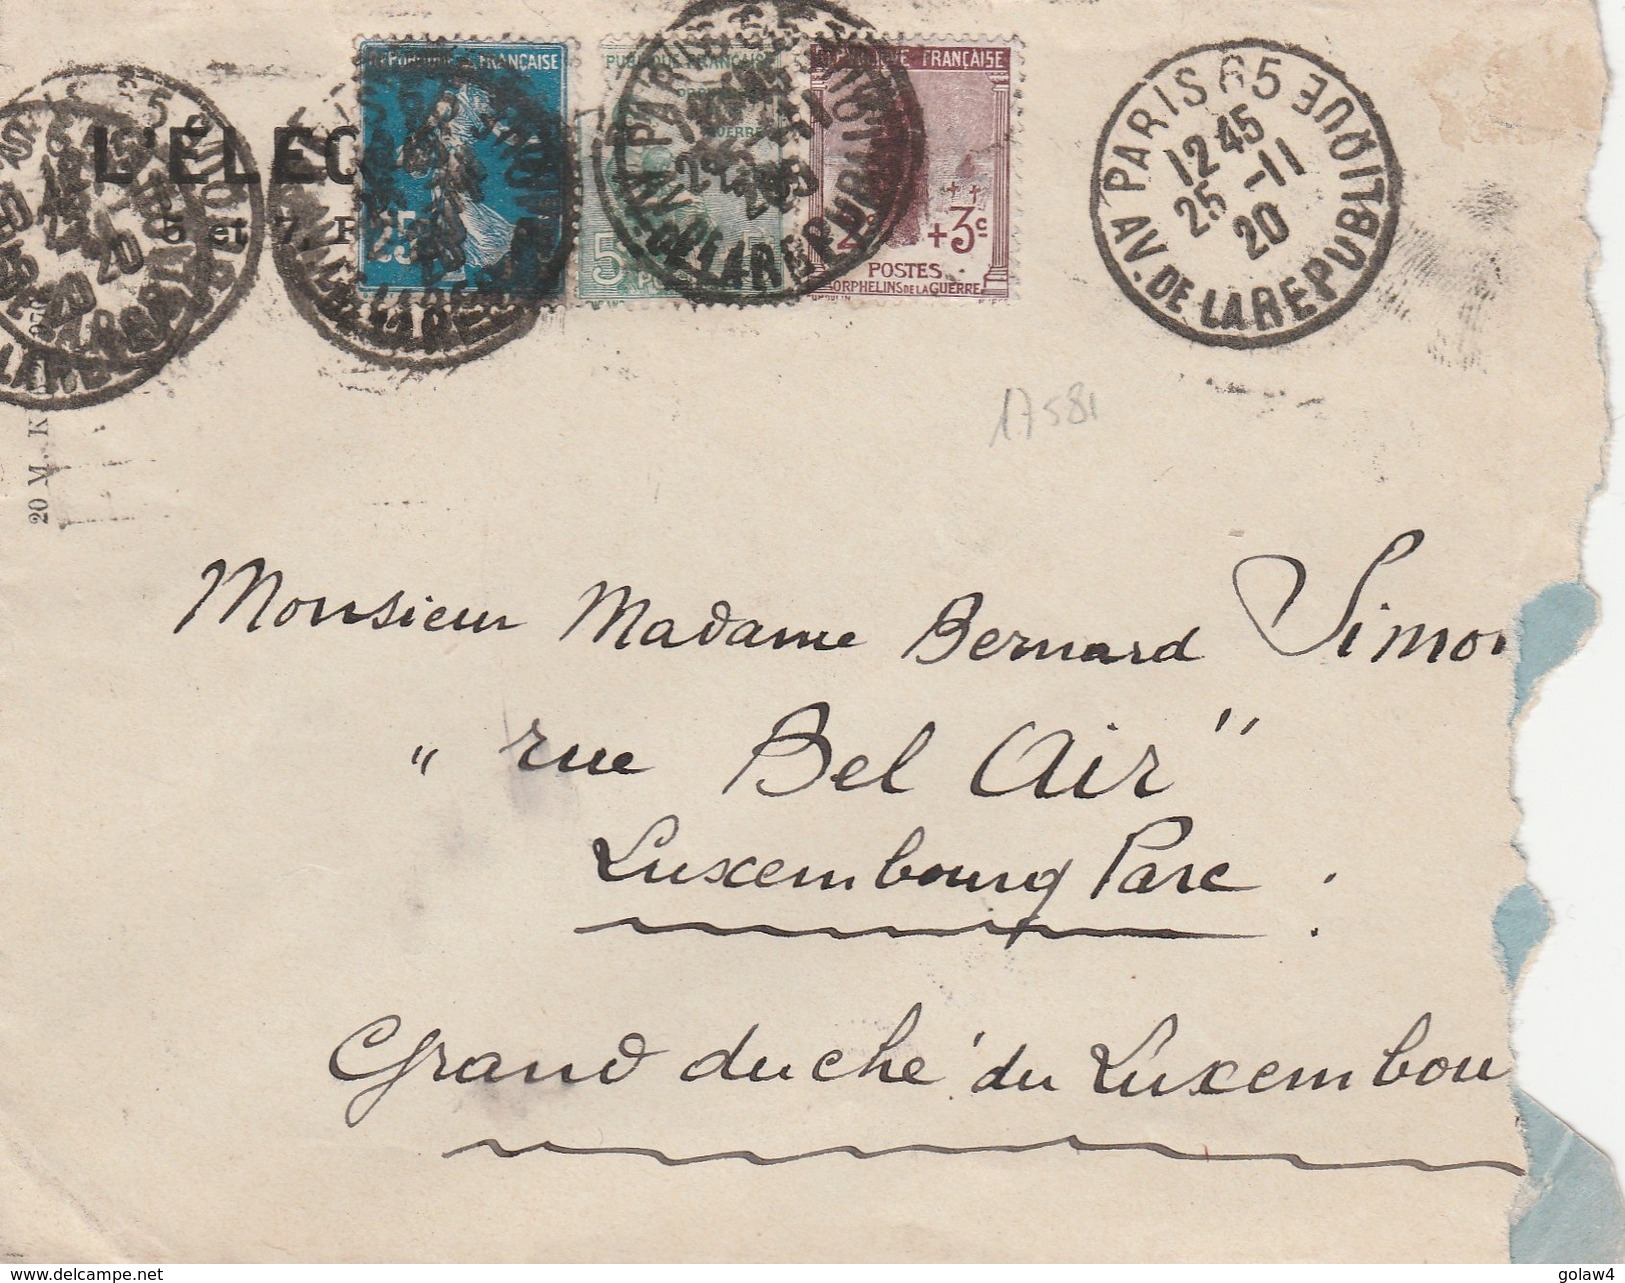 L'ÉLEC
5 et 7, R
20 M. K
RÉPUBLIQUE FRANÇAISE
25
PUBLIQUE FRANÇAISE
5
RÉPUBLIQUE FRANÇAISE
2c +3c
POSTES
ORPHELINS DE LA GUERRE
PARIS 65
AV. DE LA REPUBLIQUE
12 45
25 -11
20
17581
Monsieur Madame Bernard Simon
" rue Bel Air "
Luxembourg Parc :
Grand duché du Luxembou
www.delcampe.net
golaw4